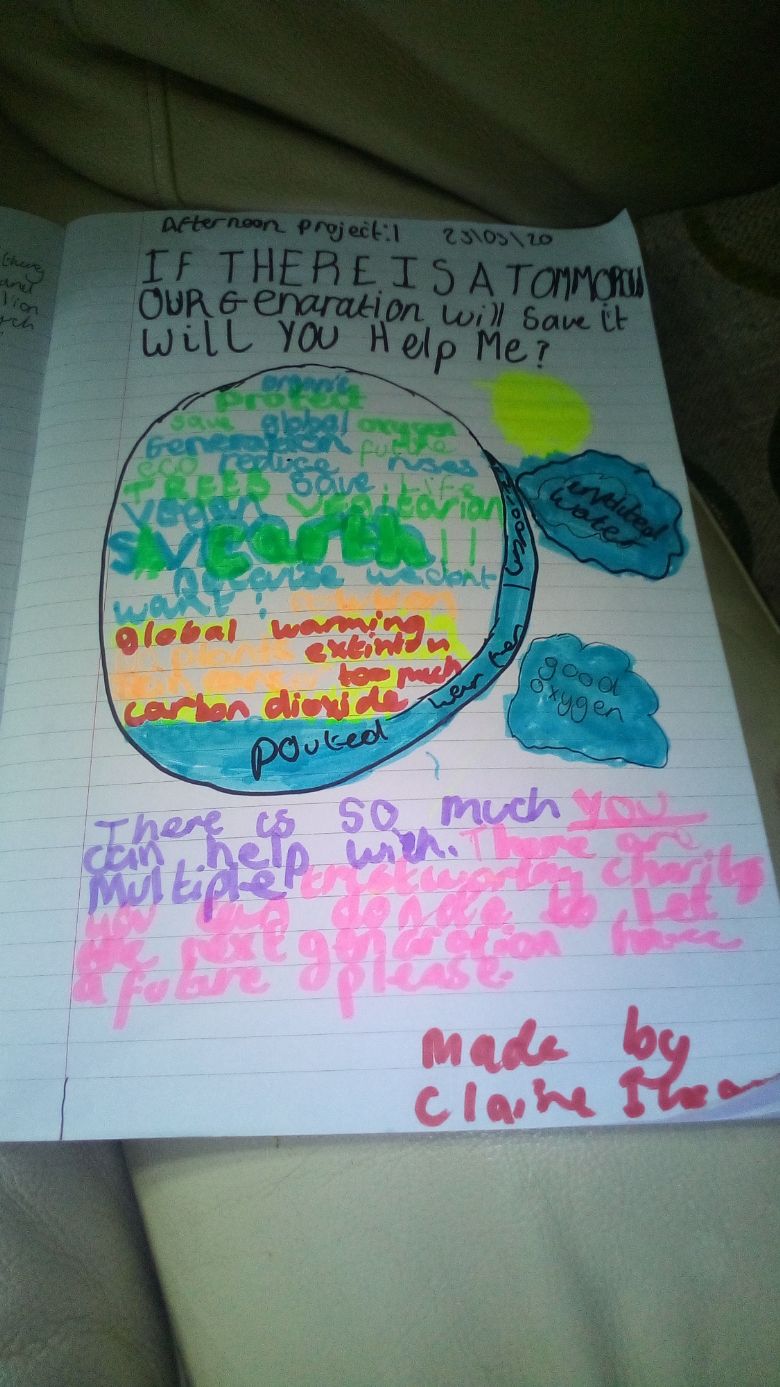 Afternoon project:1 23/03/20
IF THERE IS A TOMMOROW
OUR GENaration will Save it
WILL YOU Help Me?
organic
protect
save global oxygen
Generation future
eco reduce
TREES save life
vegan vegitarian
SAVE earth !!
because we dont
want:
global warming
extintion
too much
carbon dioxide
pouted
water
good
oxygen
There is so much you
can help with. There are
Multiple trustworthy charitys
you can donate to let
the next generation have
a future please.
Made by
Claire